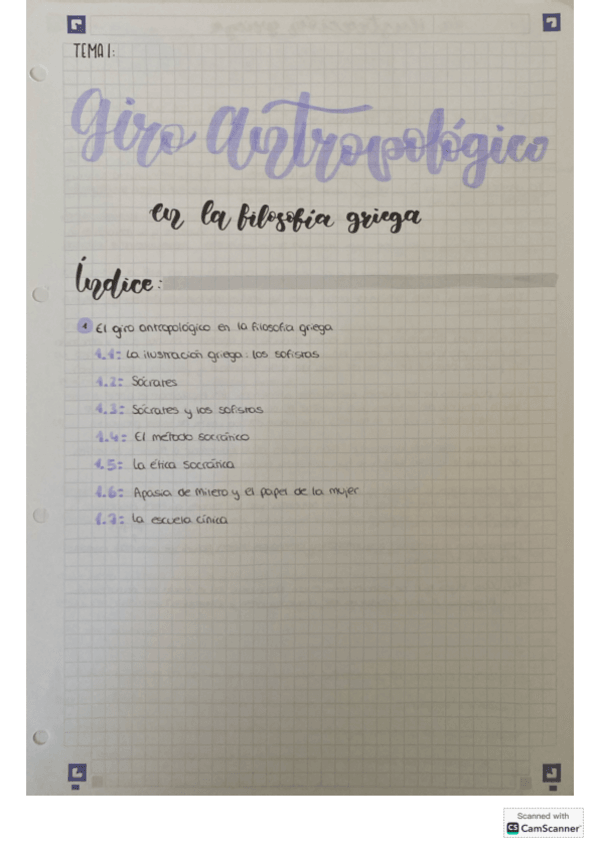 TEMA 1:
Giro Antropológico
en la filosofía griega
Índice:
1 El giro antropológico en la filosofía griega
1.1: La ilustración griega: los sofistas
1.2: Sócrates
1.3: Sócrates y los sofistas
1.4: El método socrático
1.5: La ética socrática
1.6: Apasia de Mileto y el papel de la mujer
1.7: La escuela cínica
Scanned with
CS CamScanner